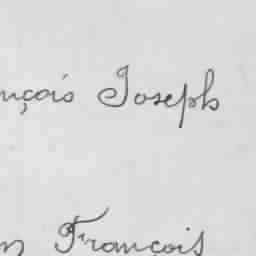 nçois Joseph
n François